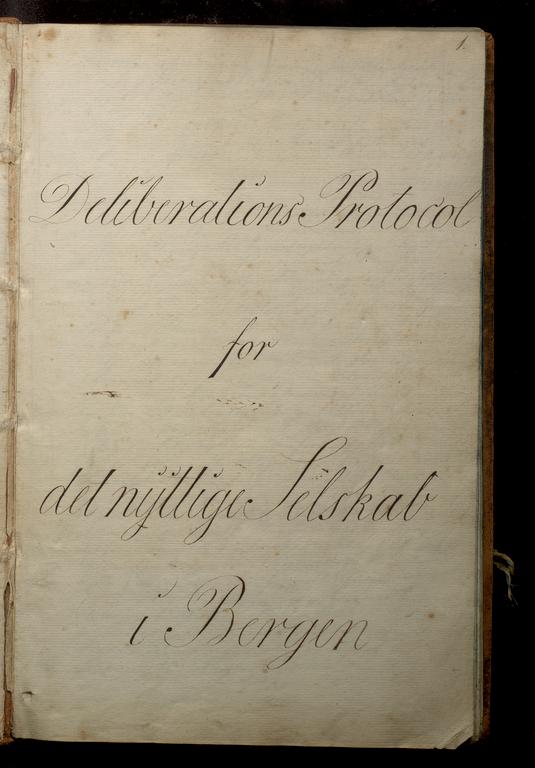 1.
Deliberations Protocol
for
det nÿttige Selskab
i Bergen